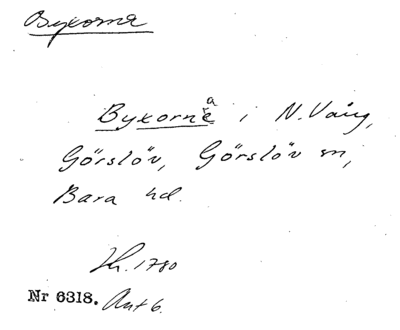 Byxorna
Byxorna i N. Vång,
Görslöv, Görslöv sn,
Bara hd.
Kr. 1780
Nr 6318. Akt 6.